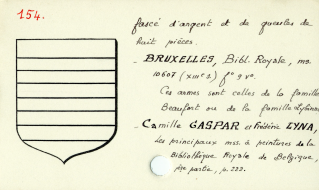 154.
fascé d'argent et de gueules de
huit pièces.
- BRUXELLES, Bibl. Royale, ms.
10607 (XIIIe s) f° 9 v°.
Ces armes sont celles de la famille
Beaufort ou de la famille
- Camille GASPAR et Frédéric LYNA,
Les principaux mss. à peintures de la
Bibliothèque Royale de Belgique,
partie, p. 222.